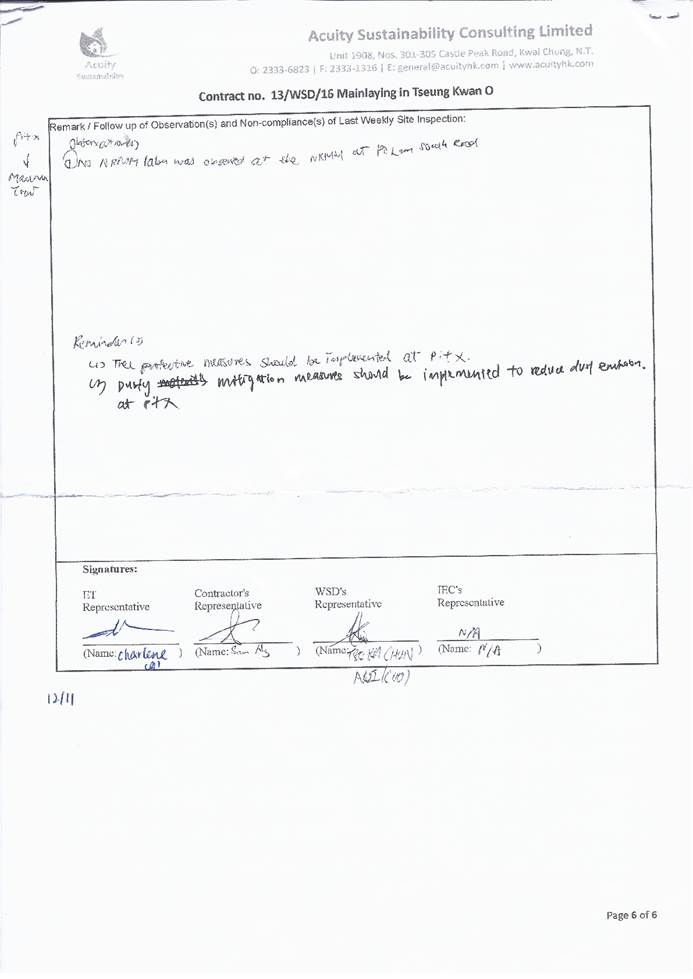 Acuity Sustainability Consulting Limited
Acuity
Unit 1908, Nos. 301-305 Castle Peak Road, Kwai Chung, N.T.
O: 2333-6823 | F: 2333-1316 | E: general@acuityhk.com | www.acuityhk.com
Contract no. 13/WSD/16 Mainlaying in Tseung Kwan O
Remark / Follow up of Observation(s) and Non-compliance(s) of Last Weekly Site Inspection:
Pit x
Observation(s)
① No NRMM label was observed at the NRMM at Po Lam South Road
Reminder(s)
(1) Tree protective measures should be implemented at Pit X.
(2) Dusty mitigation measures should be implemented to reduce dust emission.
at Pit X
Signatures:
ET Representative
Contractor's Representative
WSD's Representative
IEC's Representative
N/A
(Name: Charlene )
(Name: Sam )
(Name: )
(Name: N/A )
12/11
Page 6 of 6